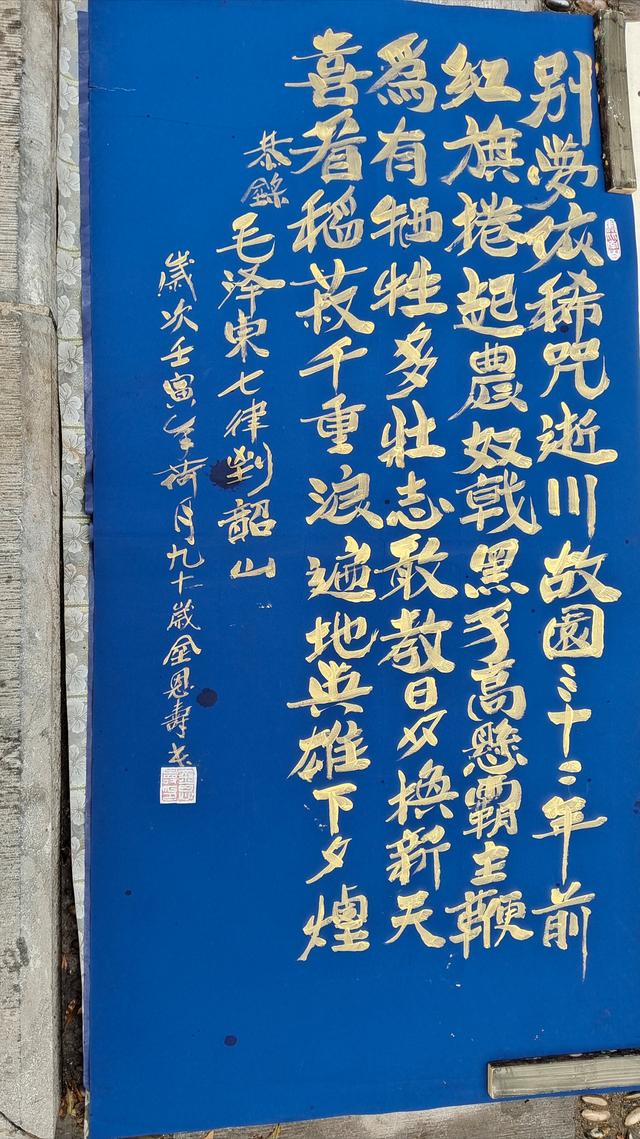 别夢依稀咒逝川故園三十二年前
红旗捲起農奴戟黑手高懸霸主鞭
爲有牺牲多壯志敢教日月換新天
喜看稻菽千重浪遍地英雄下夕煙
恭錄
毛泽東七律到韶山
歲次壬寅年荷月九十歲金恩壽书